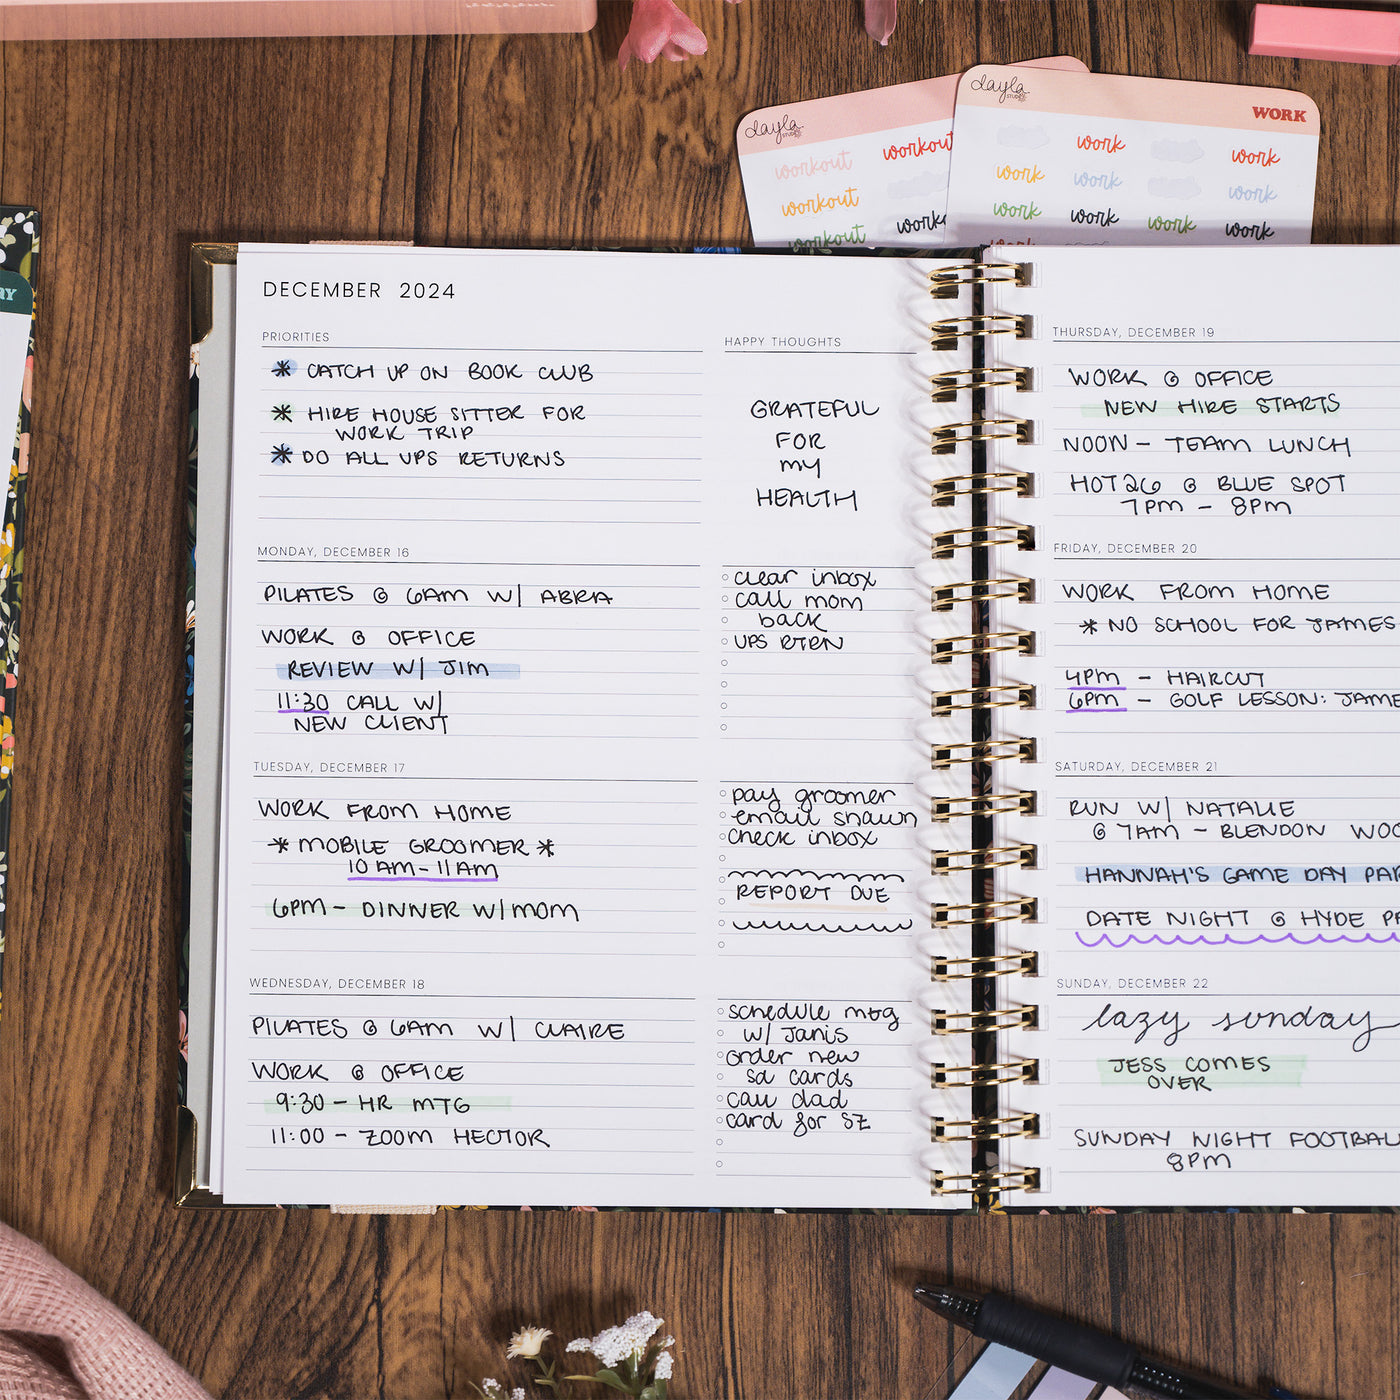 dayla
STUDIO
workout
workout
workout
workout
dayla
STUDIO
WORK
work
work
work
work
work
work
work
work
work
AY
DECEMBER 2024
PRIORITIES
* CATCH UP ON BOOK CLUB
* HIRE HOUSE SITTER FOR
WORK TRIP
* DO ALL UPS RETURNS
HAPPY THOUGHTS
GRATEFUL
FOR
MY
HEALTH
MONDAY, DECEMBER 16
PILATES @ 6AM W/ ABRA
WORK @ OFFICE
REVIEW W/ JIM
11:30 CALL W/
NEW CLIENT
clear inbox
call mom
back
UPS RTRN
TUESDAY, DECEMBER 17
WORK FROM HOME
* MOBILE GROOMER *
10 AM - 11 AM
6PM - DINNER W/ MOM
pay groomer
email shawn
check inbox
REPORT DUE
WEDNESDAY, DECEMBER 18
PILATES @ 6AM W/ CLAIRE
WORK @ OFFICE
9:30 - HR MTG
11:00 - ZOOM HECTOR
schedule mtg
w/ Janis
order new
sd cards
call dad
card for SZ
THURSDAY, DECEMBER 19
WORK @ OFFICE
NEW HIRE STARTS
NOON - TEAM LUNCH
HOT 26 @ BLUE SPOT
7PM - 8PM
FRIDAY, DECEMBER 20
WORK FROM HOME
* NO SCHOOL FOR JAMES
4PM - HAIRCUT
6PM - GOLF LESSON: JAME
SATURDAY, DECEMBER 21
RUN W/ NATALIE
@ 7AM - BLENDON WOO
HANNAH'S GAME DAY PAR
DATE NIGHT @ HYDE PA
SUNDAY, DECEMBER 22
lazy sunday
JESS COMES
OVER
SUNDAY NIGHT FOOTBAL
8PM